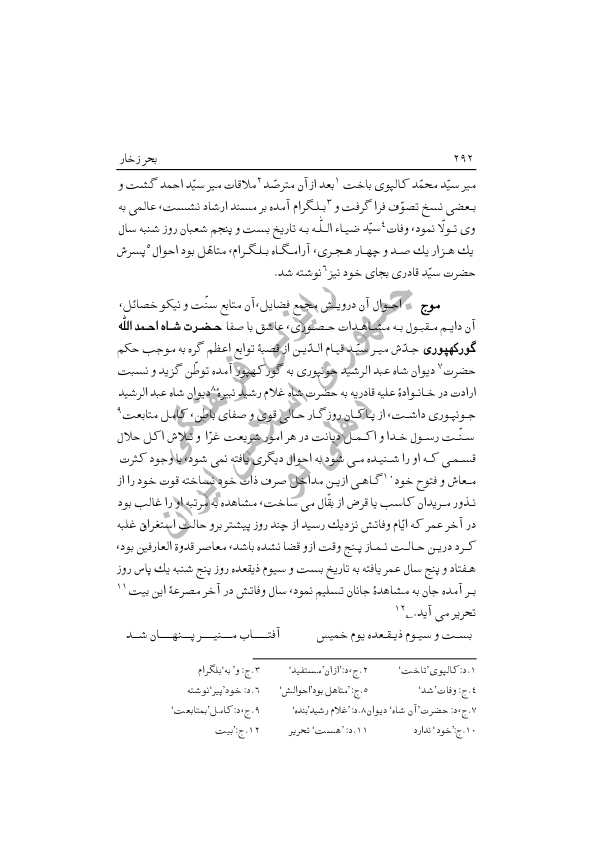 ۲۹۲ بحر زخار
میر سیّد محمّد کالپوی باخت۱ بعد از آن مترصّد۲ ملاقات میر سیّد احمد گشت و
بعضی نسخ تصوّف فرا گرفت و۳ بلگرام آمده بر مسند ارشاد نشست، عالمی به
وی تولّا نمود، وفات۴ سیّد ضیاء اللّٰه به تاریخ بست و پنجم شعبان روز شنبه سال
یك هزار یك صد و چهار هجری، آرامگاه بلگرام، متاهّل بود احوال۵ پسرش
حضرت سیّد قادری بجای خود نیز۶ نوشته شد.
موج احوال آن درویش مجمع فضایل، آن متابع سنّت و نیکو خصائل،
آن دایم مقبول به مشاهدات حضوری، عاشق با صفا حضرت شاه احمد اللّٰه
گورکهپوری جدّش میر سیّد قیام الدّین از قصبهٔ توابع اعظم گره به موجب حکم
حضرت۷ دیوان شاه عبد الرشید جونپوری به گورکهپور آمده توطّن گزید و نسبت
ارادت در خانوادهٔ علیه قادریه به حضرت شاه غلام رشید نبیرهٔ۸ دیوان شاه عبد الرشید
جونپوری داشت، از پاکان روزگار حالی قوی و صفای باطن، کامل متابعت۹
سنّت رسول خدا و اکمل دیانت در هر امور شریعت غرّا و تلاش اکل حلال
قسمی که او را شنیده می شود به احوال دیگری یافته نمی شود، با وجود کثرت
معاش و فتوح خود۱۰ گاهی ازین مداخل صرف ذات خود نساخته قوت خود را از
نذور مریدان کاسب یا قرض از بقّال می ساخت، مشاهده به مرتبه او را غالب بود
در آخر عمر که ایّام وفاتش نزدیك رسید از چند روز پیشتر برو حالت استغراق غلبه
کرد درین حالت نماز پنج وقت ازو قضا نشده باشد، معاصر قدوة العارفین بود،
هفتاد و پنج سال عمر یافته به تاریخ بست و سیوم ذیقعده روز پنج شنبه یك پاس روز
بر آمده جان به مشاهدهٔ جانان تسلیم نمود، سال وفاتش در آخر مصرعهٔ این بیت۱۱
تحریر می آید.۱۲
بست و سیوم ذیقعده یوم خمیس آفتاب منیر پنهان شد
۱.د: کالپوی'تاخت' ۲.ج،د:'ازان'مستفید' ۳.ج: و'به'بلگرام
۴.ج: وفات'شد' ۵.ج:'متاهل بود'احوالش' ۶.د: خود'پیر'نوشته
۷.ج،د: حضرت'آن شاه' دیوان ۸.د:'غلام رشید'بنده' ۹.ج،د: کامل'بمتابعت'
۱۰.ج:'خود' ندارد ۱۱.د: 'هست' تحریر ۱۲.ج:'بیت